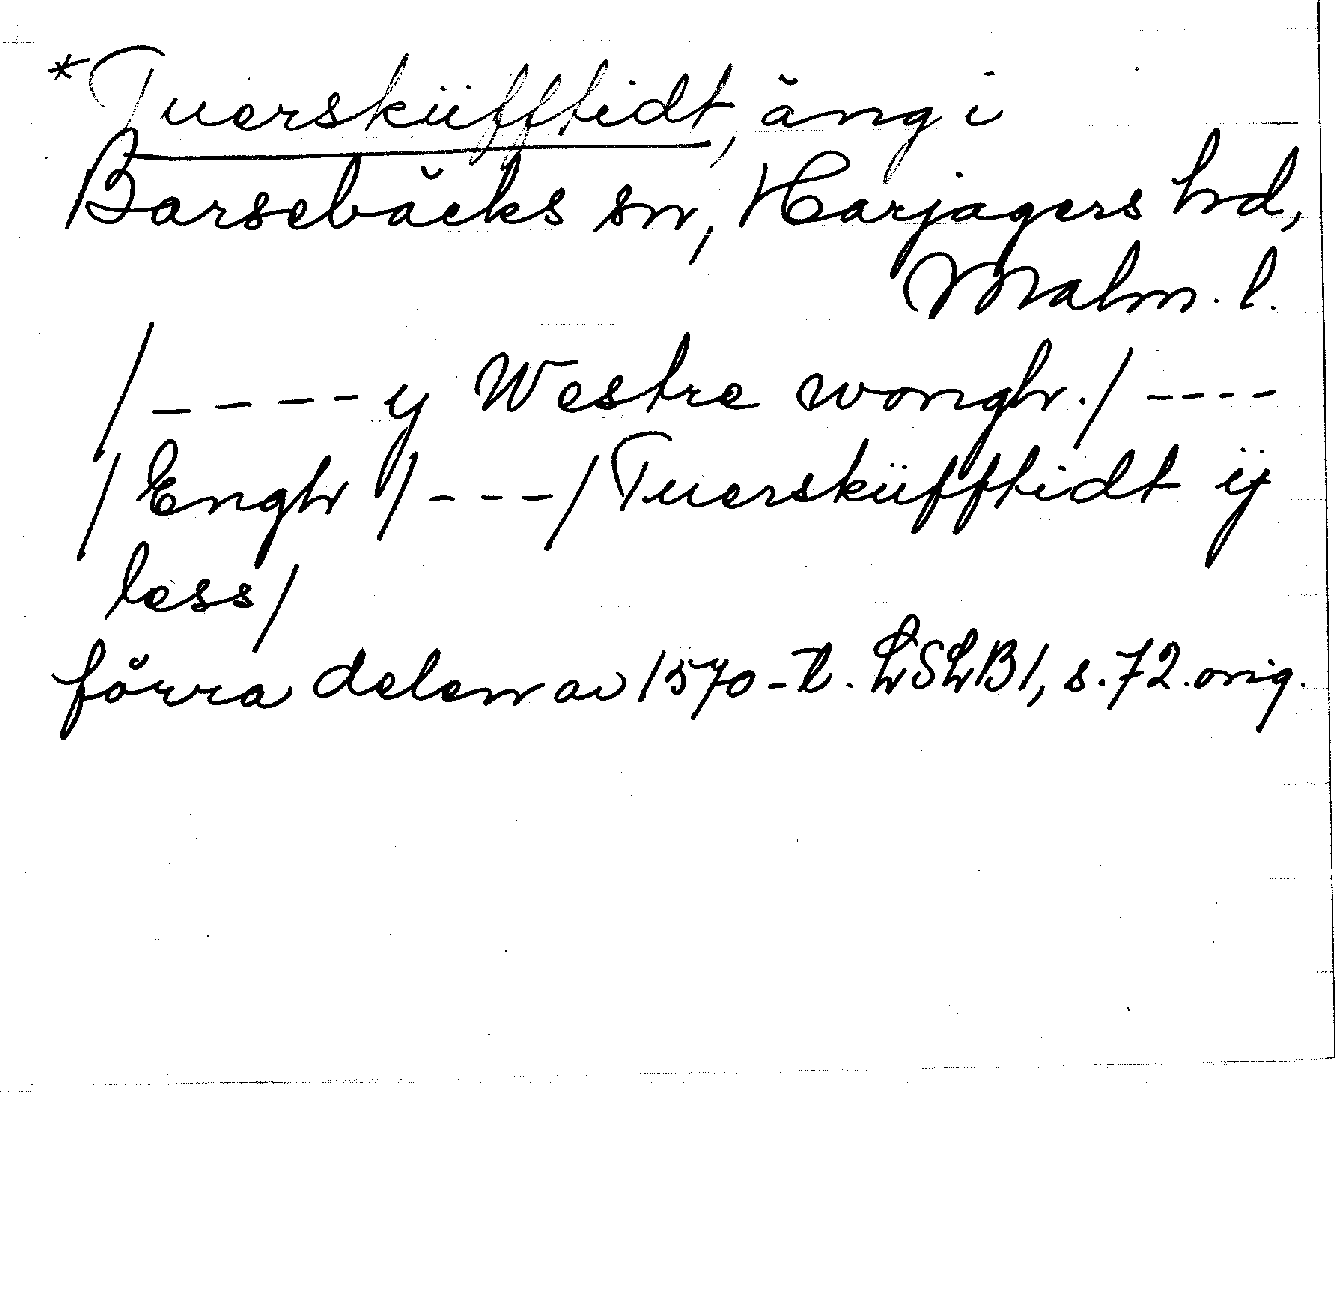 *Tuersküfftidt, äng i
Barsebäcks sn, Harjagers hd,
Malm. l.
/ - - - - y Westre wongh. / - - - -
/ Engh / - - - / Tuersküfftidt ij
less /
förra delen av 1570-t. LSLB1, s. 72. orig.